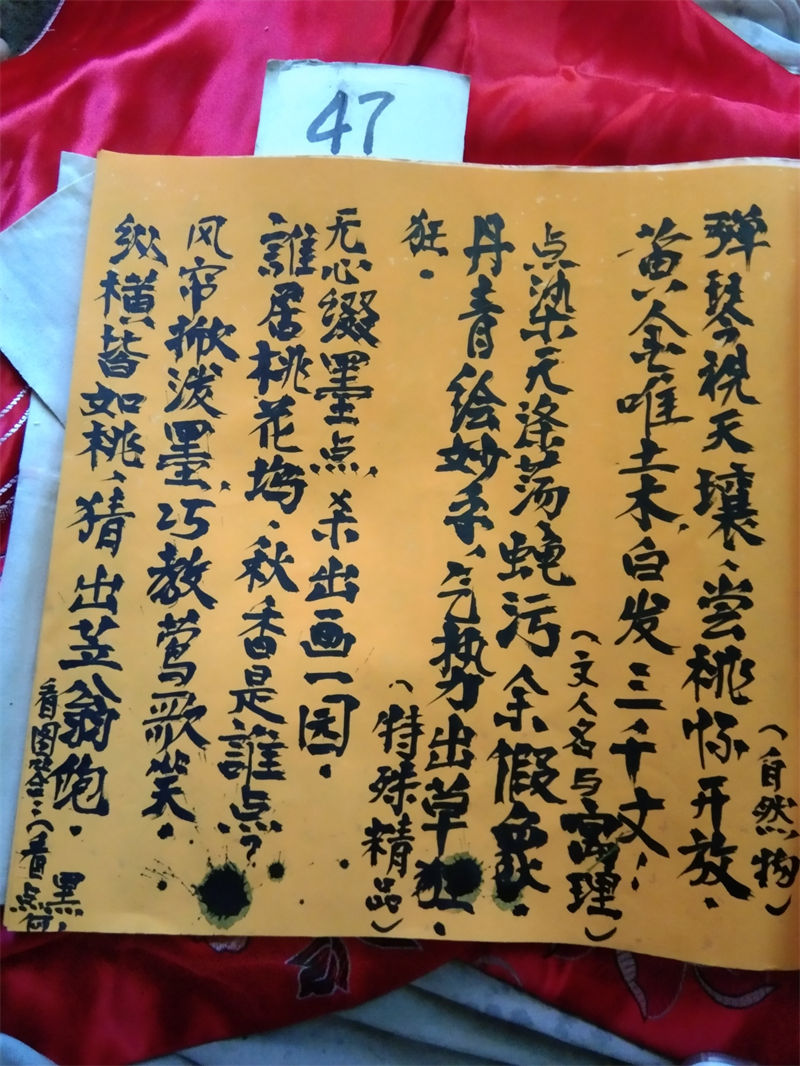 47
弹琴祝天壤、尝桃怀开放.
(自然物)
黄金唯土木,白发三千丈.
(文人名与寓理)
点染无涤荡,蝇污余假象.
丹青绘妙手,气势出草狂.
狂.
(特殊精品)
无心缀墨点,杀出画一园.
誰居桃花坞、秋香是誰点?
风帘掀泼墨,巧教莺歌笑.
纵横苔如桃,猜出笠翁飽.
看图
(看点何
黑,